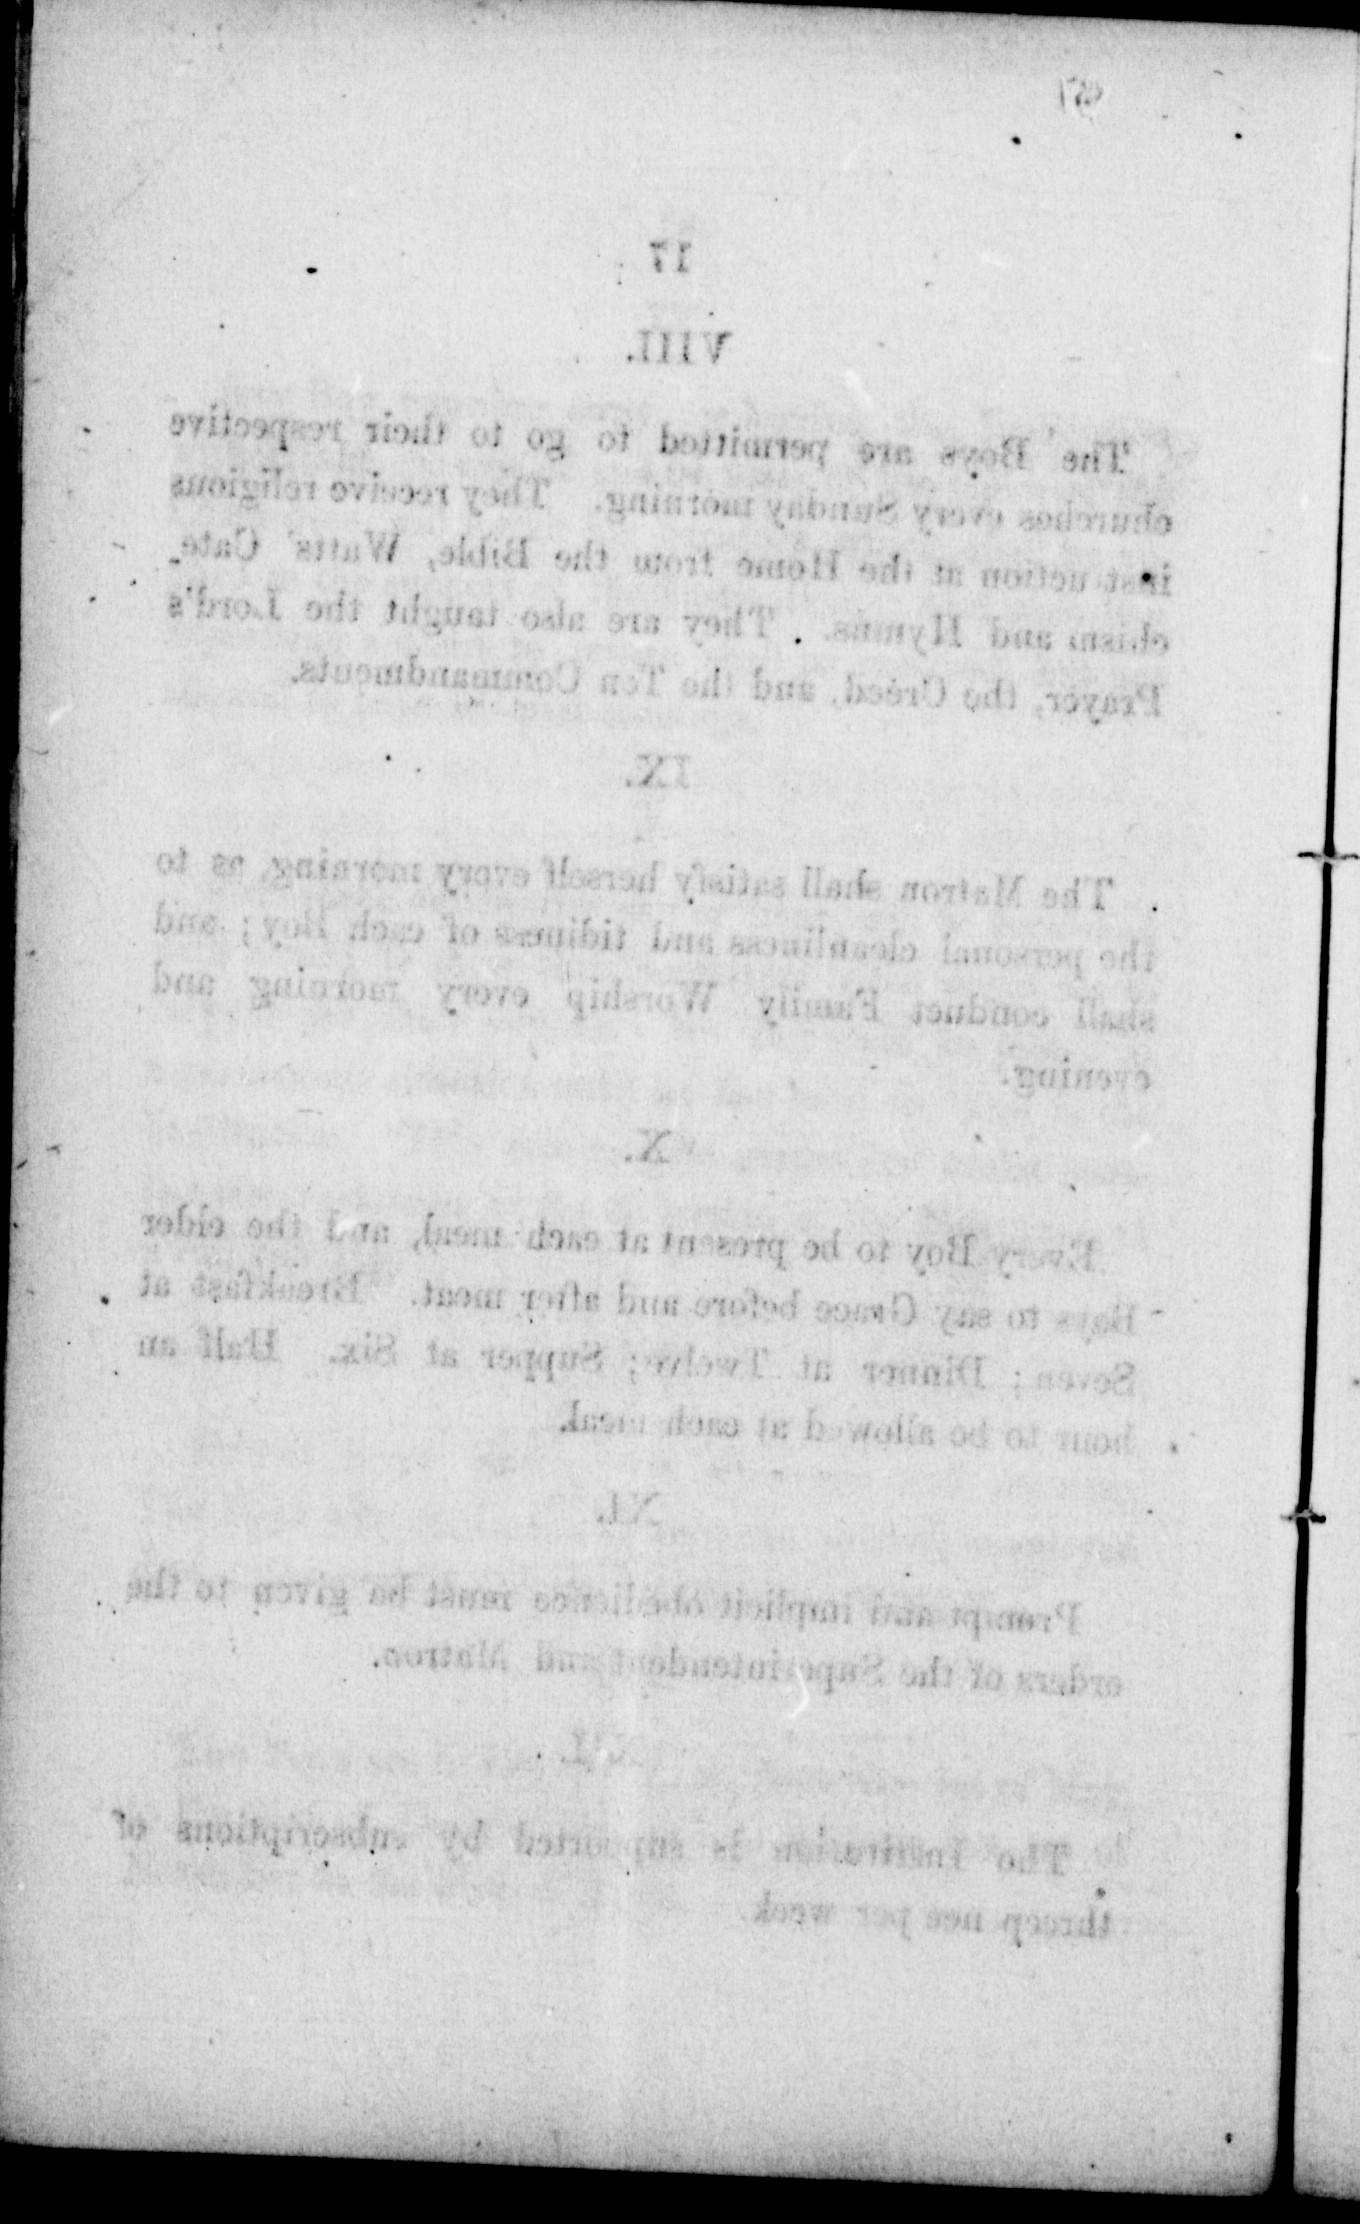 17
VIII.
The Boys are permitted to go to their respective
churches every Sunday morning. They receive religious
instruction at the Home from the Bible, Watts' Cate-
chism and Hymns. They are also taught the Lord's
Prayer, the Creed, and the Ten Commandments.
IX.
The Matron shall satisfy herself every morning, as to
the personal cleanliness and tidiness of each Boy; and
shall conduct Family Worship every morning and
evening.
X.
Every Boy to be present at each meal, and the elder
Boys to say Grace before and after meat. Breakfast at
Seven; Dinner at Twelve; Supper at Six. Half an
hour to be allowed at each meal.
XI.
Prompt and implicit obedience must be given to the
orders of the Superintendent and Matron.
XII.
The Institution is supported by subscriptions of
threepence per week.